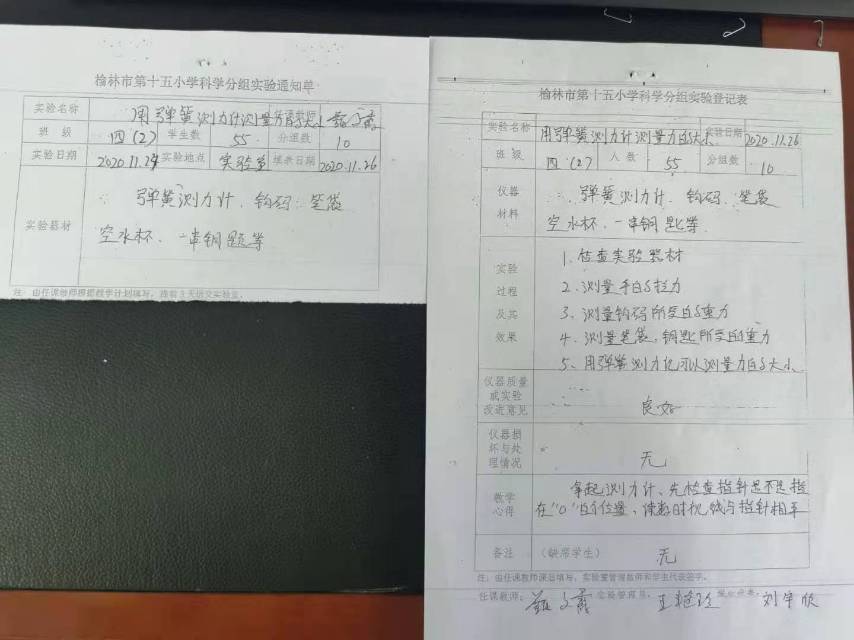 榆林市第十五小学科学分组实验通知单
实验名称 用弹簧测力计测量力的大小
班 级 四(2) 学生数 55 分组数 10
实验日期 2020.11.27 实验地点 实验室 填表日期 2020.11.26
实验器材 弹簧测力计、钩码、笔袋
空水杯、一串钥匙等
注:由任课教师根据教学计划填写,提前3天送交实验室。
榆林市第十五小学科学分组实验登记表
实验名称 用弹簧测力计测量力的大小 实验日期 2020.11.26
班 级 四(2) 人 数 55 分组数 10
仪器
材料
弹簧测力计、钩码、笔袋
空水杯、一串钥匙等
实验
过程
及其
效果
1、检查实验器材
2、测量手的拉力
3、测量钩码所受的重力
4、测量笔袋、钥匙所受的重力
5、用弹簧测力计可以测量力的大小
仪器质量
或实验
改进意见
良好
仪器损
坏与处
理情况
无
教学
心得
拿起测力计、先检查指针是不是指
在"0"的位置、读数时视线与指针相平
备注 (缺席学生) 无
注:由任课教师课后填写,实验室管理教师和学生代表签字。
任课教师: 实验管理员: 学生代表: